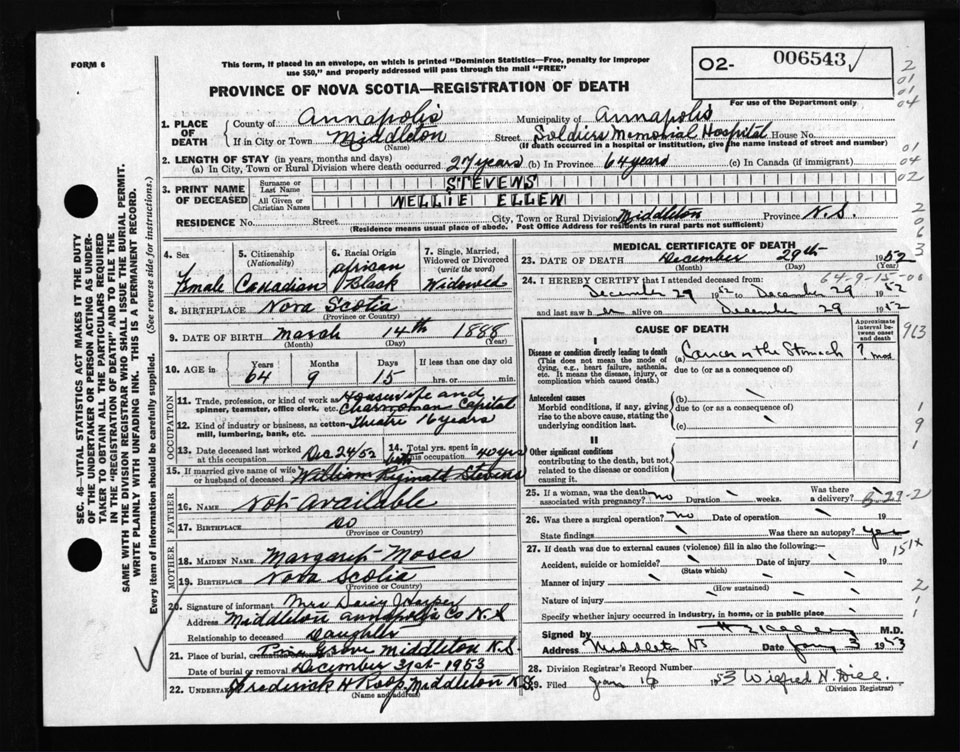 FORM 6
This form, if placed in an envelope, on which is printed "Dominion Statistics—Free, penalty for improper
use $50," and properly addressed will pass through the mail "FREE"
PROVINCE OF NOVA SCOTIA—REGISTRATION OF DEATH
O2- 006543
For use of the Department only
1. PLACE OF DEATH
County of Annapolis Municipality of Annapolis
If in City or Town Middleton Street Soldiers Memorial Hospital House No.
(Name) (If death occurred in a hospital or institution, give the name instead of street and number)
2. LENGTH OF STAY (in years, months and days)
(a) In City, Town or Rural Division where death occurred 27 years (b) In Province 64 years (c) In Canada (if immigrant)
3. PRINT NAME OF DECEASED
Surname or Last Name STEVENS
All Given or Christian Names NELLIE ELLEN
RESIDENCE No. Street City, Town or Rural Division Middleton Province N.S.
(Residence means usual place of abode. Post Office Address for residents in rural parts not sufficient)
4. Sex Female
5. Citizenship (Nationality) Canadian
6. Racial Origin African Black
7. Single, Married, Widowed or Divorced (write the word) Widowed
8. BIRTHPLACE Nova Scotia
(Province or Country)
9. DATE OF BIRTH March 14th 1888
(Month) (Day) (Year)
10. AGE in Years Months Days If less than one day
64 9 15 hrs. or min.
OCCUPATION
11. Trade, profession, or kind of work as spinner, teamster, office clerk, etc. Housewife and Charwoman Capital
12. Kind of industry or business, as cotton-mill, lumbering, bank, etc. Theatre 16 years
13. Date deceased last worked at this occupation Dec 24/52
14. Total yrs. spent in this occupation 40 yrs
15. If married give name of wife or husband of deceased William Reginald Stevens
FATHER
16. NAME Not Available
17. BIRTHPLACE do
(Province or Country)
MOTHER
18. MAIDEN NAME Margaret Moses
19. BIRTHPLACE Nova Scotia
(Province or Country)
20. Signature of informant Mrs Daisy Harper
Address Middleton Annapolis Co N.S
Relationship to deceased Daughter
21. Place of burial, cremation or removal Pine Grove Middleton N.S.
Date of burial or removal December 31st- 1953
22. Undertaker Frederick H Roop, Middleton N.S.
(Name and address)
MEDICAL CERTIFICATE OF DEATH
23. DATE OF DEATH December 29th 1952
(Month) (Day) (Year)
64-9-15-00
24. I HEREBY CERTIFY that I attended deceased from:
December 29 1952 to December 29 1952
and last saw h er alive on December 29 1952
CAUSE OF DEATH
Approximate interval between onset and death
I
Disease or condition directly leading to death
(This does not mean the mode of dying, e.g., heart failure, asthenia, etc. It means the disease, injury, or complication which caused death.)
(a) Cancer in the Stomach ? mos
due to (or as a consequence of)
Antecedent causes
Morbid conditions, if any, giving rise to the above cause, stating the underlying condition last.
(b)
due to (or as a consequence of)
(c)
II
Other significant conditions
contributing to the death, but not related to the disease or condition causing it.
25. If a woman, was the death associated with pregnancy? no Duration weeks. Was there a delivery?
B-29-2
26. Was there a surgical operation? no Date of operation 19
State findings Was there an autopsy? yes
27. If death was due to external causes (violence) fill in also the following:—
Accident, suicide or homicide? Date of injury 19
(State which)
Manner of injury
(How sustained)
Nature of injury
Specify whether injury occurred in industry, in home, or in public place
Signed by M.D.
Address Middleton NS Date Jany 3 1953
28. Division Registrar's Record Number
29. Filed Jan 16 1953 Wilfred N. Dill.
(Division Registrar)
SEC. 46—VITAL STATISTICS ACT MAKES IT THE DUTY
OF THE UNDERTAKER OR PERSON ACTING AS UNDER-
TAKER TO OBTAIN ALL THE PARTICULARS REQUIRED
IN THE "REGISTRATION OF DEATH" AND TO FILE THE
SAME WITH THE DIVISION REGISTRAR WHO SHALL ISSUE THE BURIAL PERMIT.
WRITE PLAINLY WITH UNFADING INK. THIS IS A PERMANENT RECORD.
Every item of Information should be carefully supplied. (See reverse side for instructions.)
2
01
04
01
04
02
2
0
6
3
963
1
9
1
151x
2
1
1